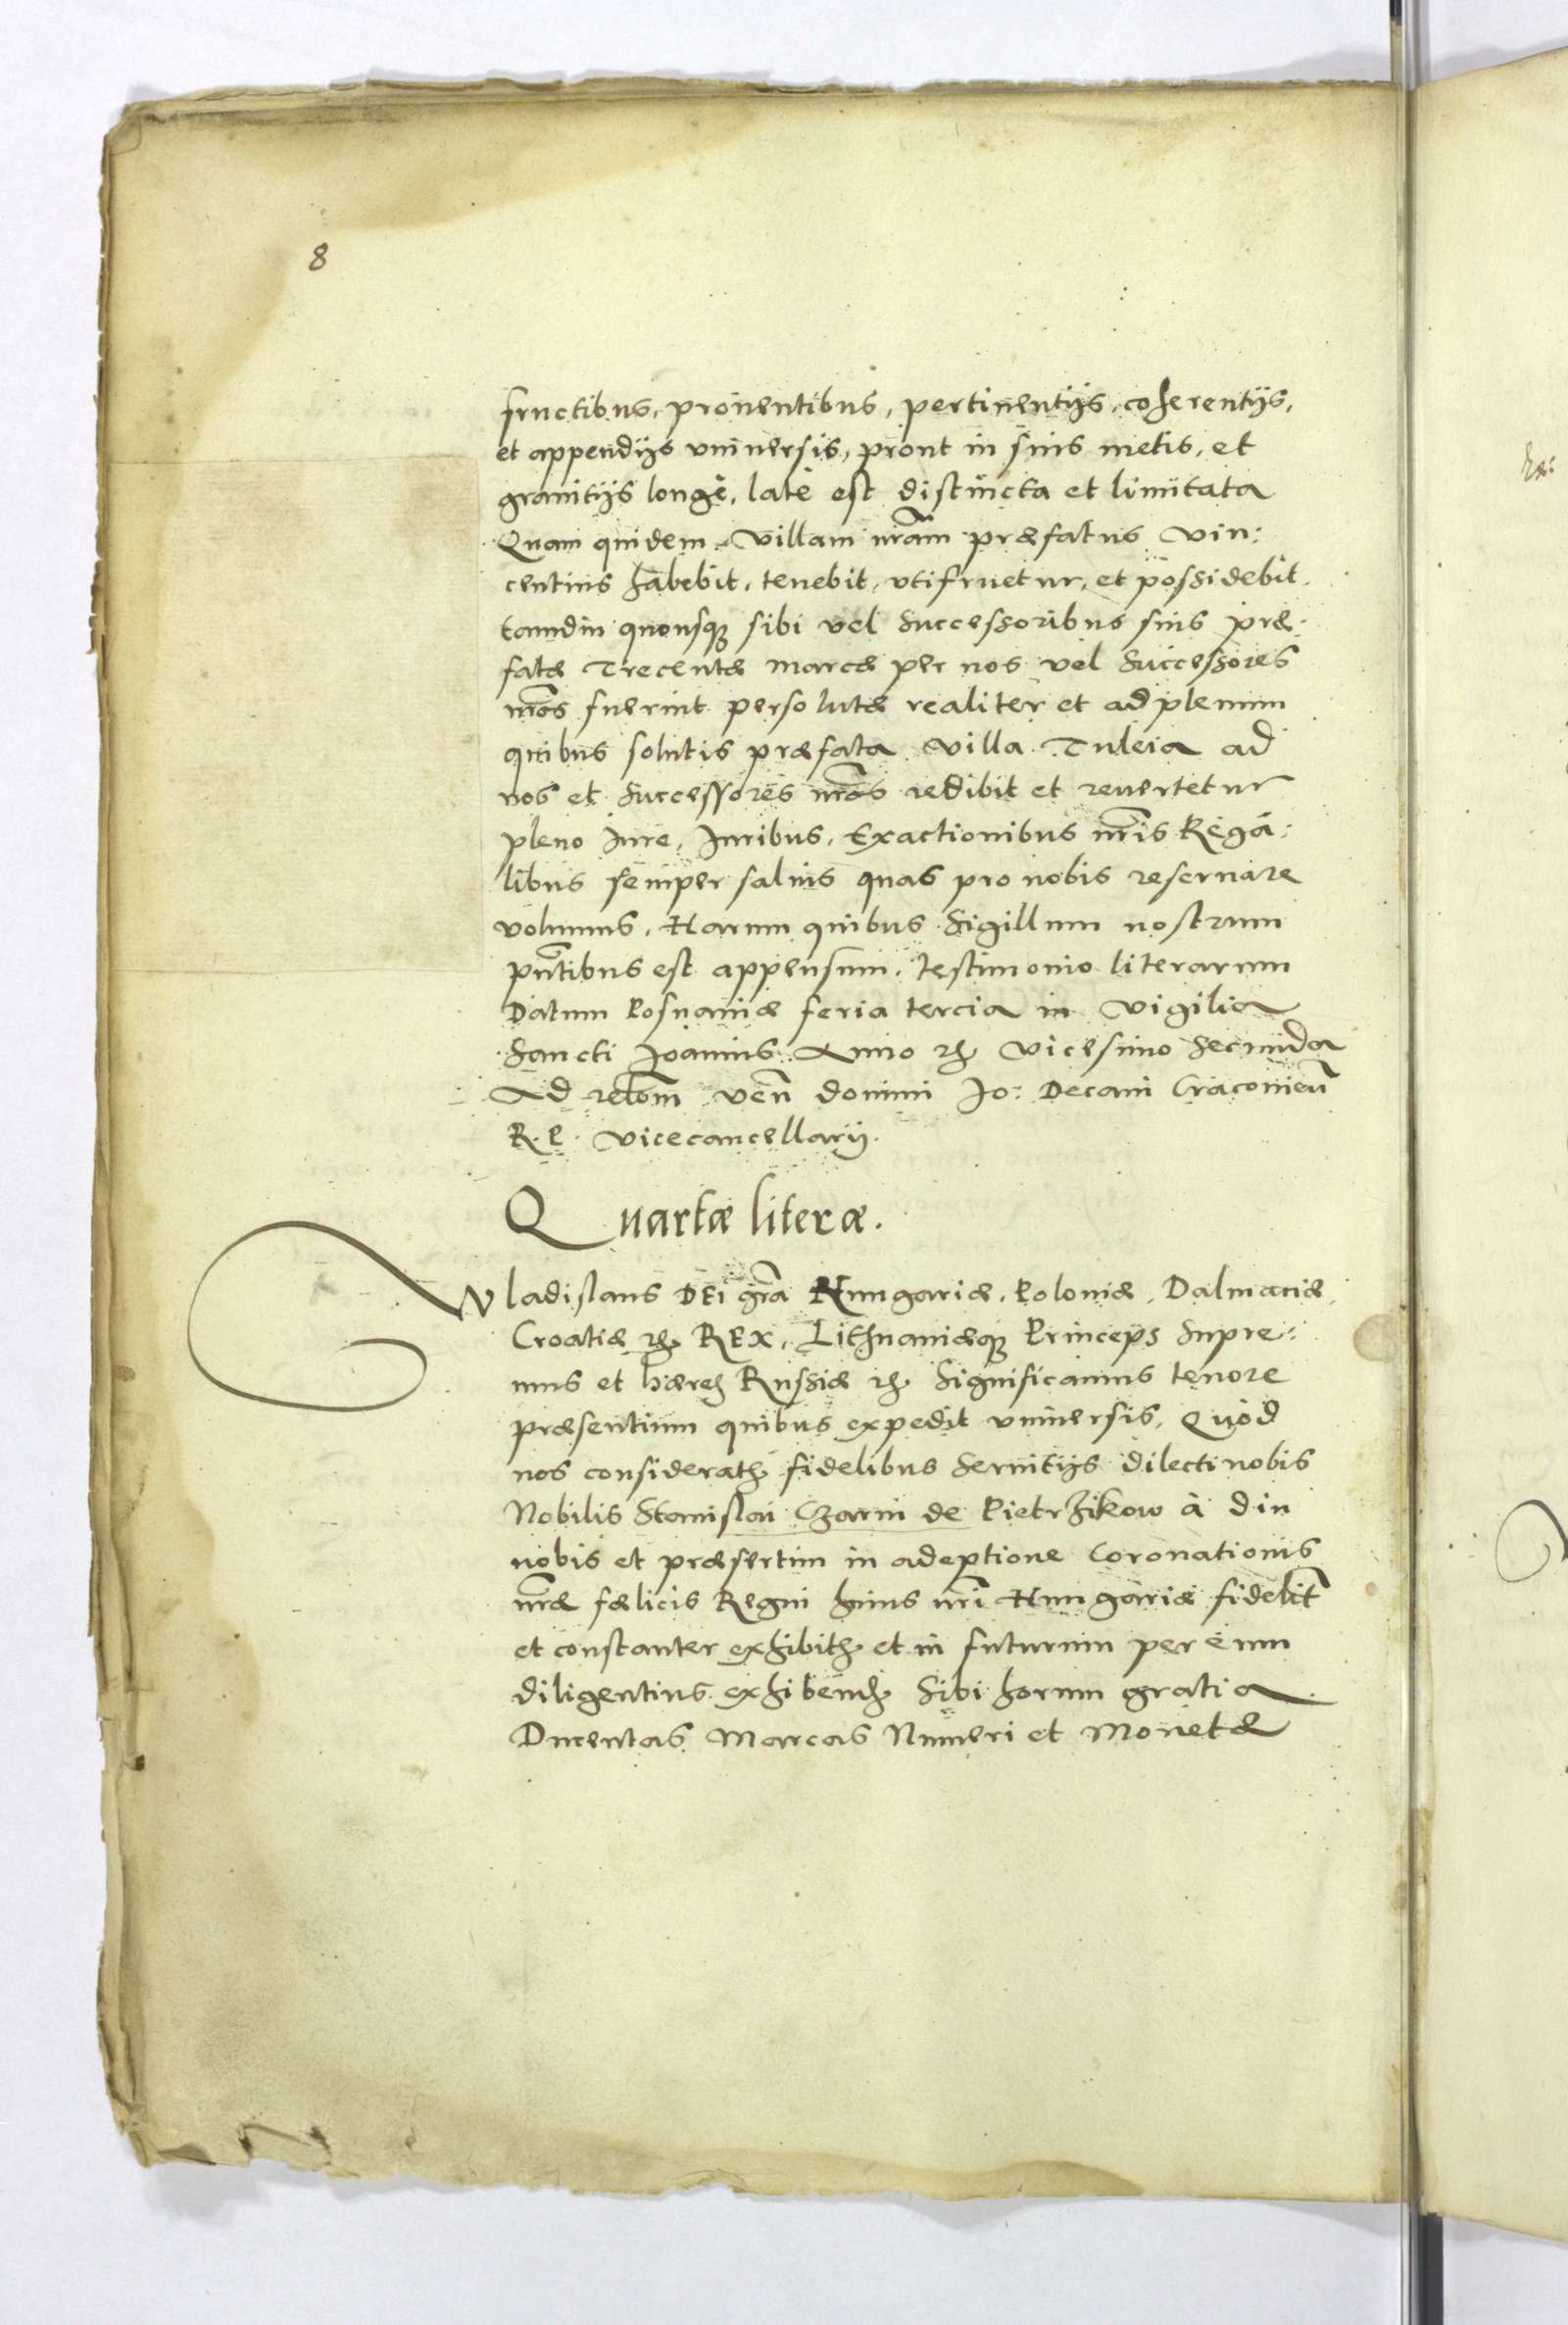 8
fructibus, prouentibus, pertinentijs, coherentijs,
et appendijs vniuersis, prout in suis metis, et
granitijs longè, latè est distincta et limitata
Quam quidem villam nrãm præfatus Vin:
centius habebit, tenebit, vtifruetur, et possidebit
tamdiu quousq̨ sibi vel Successoribus suis præ:
fatæ Trecentæ marcæ per nos vel Successores
nrõs fuerint persolutæ realiter et ad plenum
quibus solutis præfata villa Tuleia ad
nos et Successores nrõs redibit et reuertetur
pleno Iure, Iuribus, Exactionibus nrĩs Rega:
libus semper saluis quas pro nobis reseruare
volumus. Harum quibus Sigillum nostrum
pñtibus est appensum, testimonio literarum
Datum Posnaniæ feria tercia in Vigilia
Sancti Joannis Anno etc̃ Vicesimo Secundo
Ad relõm Veñ domini Jo: Decani Cracovieñ
R. P. Vicecancellarij.
Quartæ literæ.
Wladislaus DEI grã Hungariæ, Poloniæ, Dalmaciæ,
Croatiæ etc̃ REX, Lithuaniæq̨ Princeps Supre:
mus et hæres Russiæ etc̃ Significamus tenore
præsentium quibus expedit vniuersis, Quòd
nos consideratis fidelibus Seruitijs dilecti nobis
Nobilis Stanislai Czarni de Pietrzikow à diu
nobis et præsertim in adeptione Coronationis
nrẽ fælicis Regni huius nrĩ Hungariæ fidelit̃
et constanter exhibitis et in futurum per eum
diligentius exhibendis Sibi horum gratia
Ducentas Marcas Numeri et Monetæ